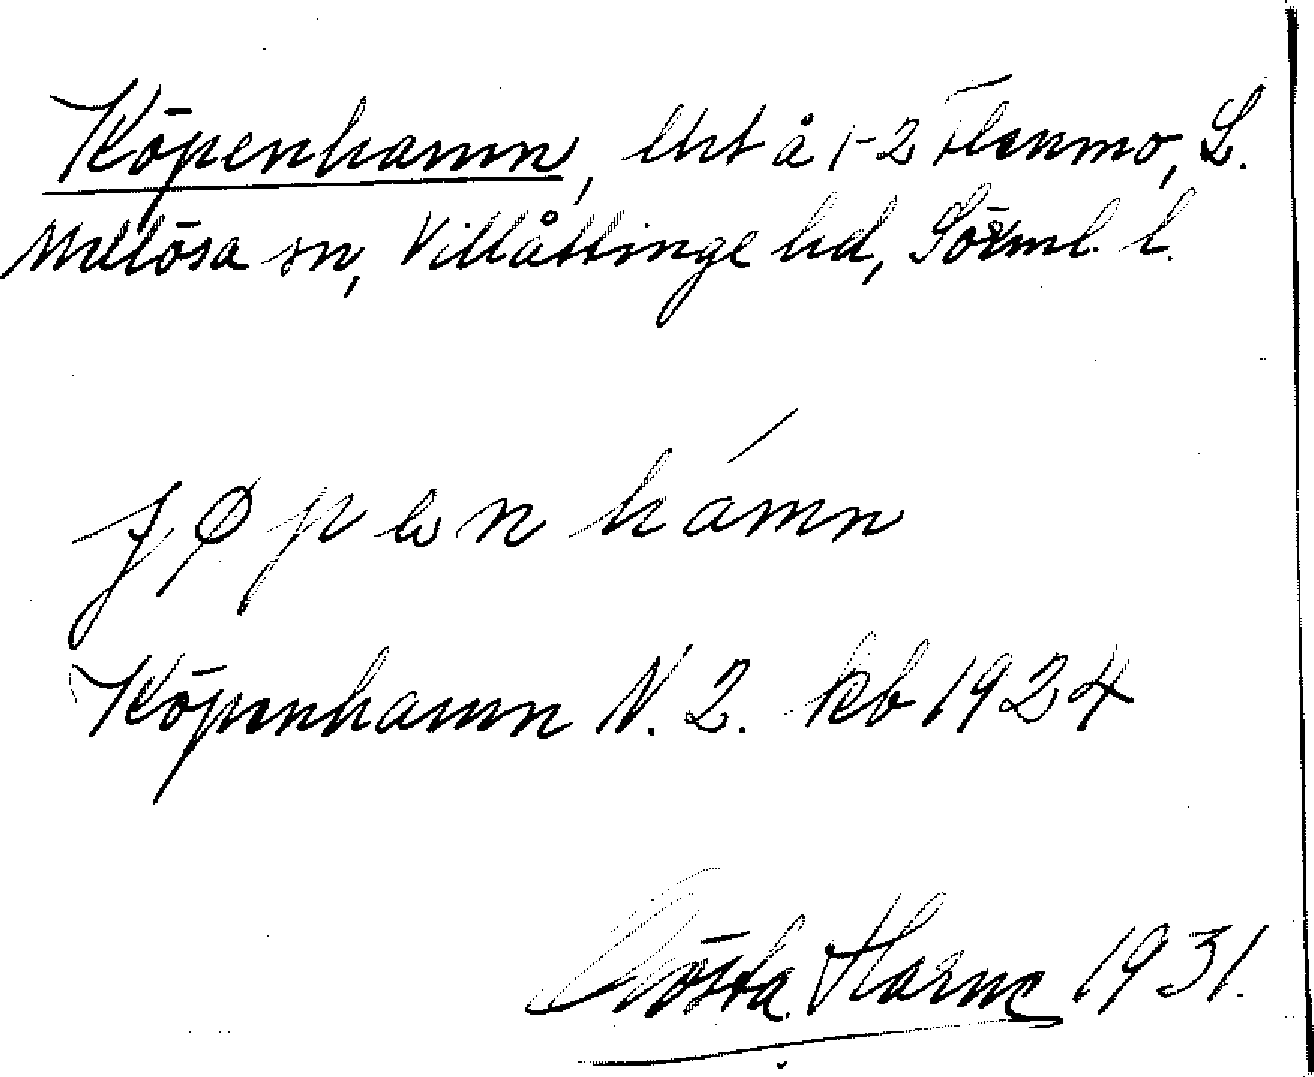 Köpenhamn, lht å 1-2 Flenmo, L.
Mellösa sn, Villåttinge hd, Sörml. l.
jøpenhámn
Köpenhamn N. 2. kb 1924
Gösta Harne 1931.